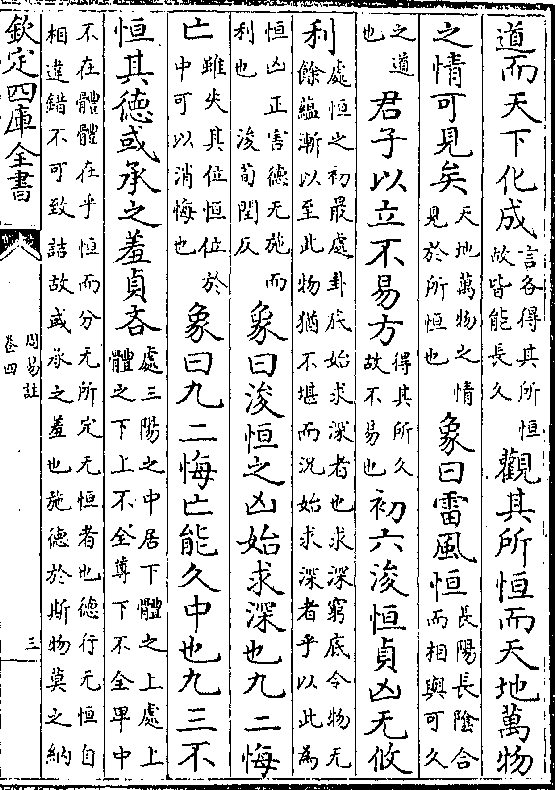 道而天下化成言各得其所恒故皆能長久觀其所恒而天地萬物
之情可見矣天地萬物之情見於所恒也象曰雷風恒長陽長陰合而相與可久
之道也君子以立不易方得其所久故不易也初六浚恒貞凶无攸
利處恒之初最處卦底始求深者也求深窮底令物无餘緼漸以至此物猶不堪而況始求深者乎以此為
恒凶正害德无施而利也 浚荀閏反象曰浚恒之凶始求深也九二悔
亡雖失其位恒位於中可以消悔也象曰九二悔亡能久中也九三不
恒其德或承之羞貞吝處三陽之中居下體之上處上體之下上不全尊下不全卑中
不在體體在乎恒而分无所定无恒者也德行无恒自相違錯不可致詰故或承之羞也施德於斯物莫之納
欽定四庫全書
周易註
卷四
三